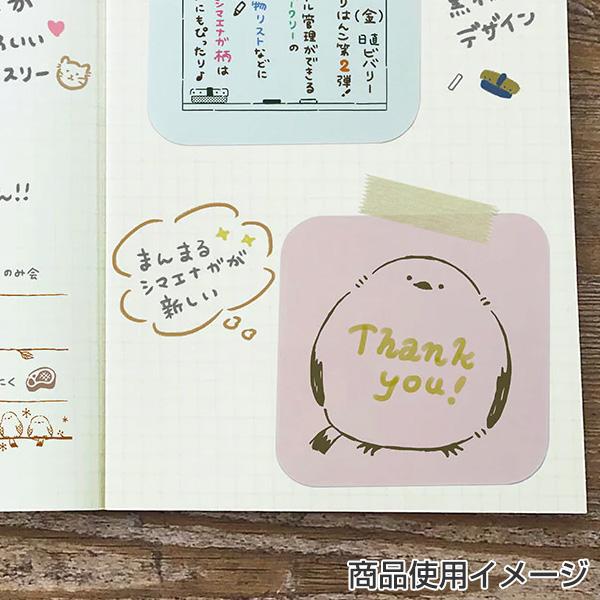 いい
スリー
ん!!
のみ会
にく
(金)
(日)
直ビバリー
りはんこ第2弾!
ル管理ができる
ークリーの
物リストなどに
シマエナガ柄は
にもぴったり♪
デザイン
まんまる
シマエナガが
新しい
Thank
you!
商品使用イメージ